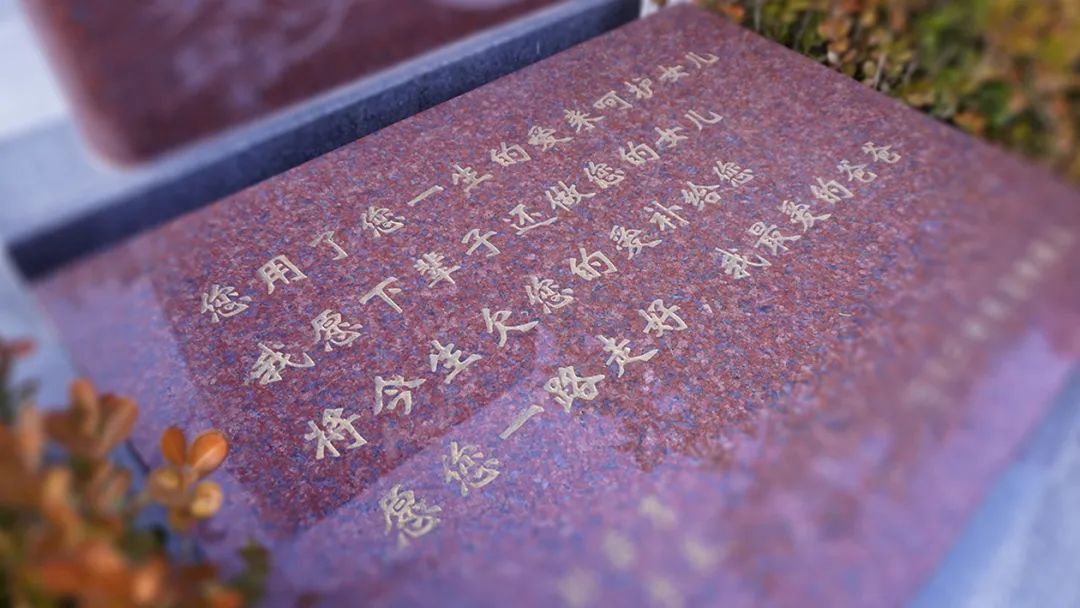 您用了您一生的爱来呵护女儿
我愿下辈子还做您的女儿
将今生欠您的爱补给您
愿您一路走好，我最爱的爸爸